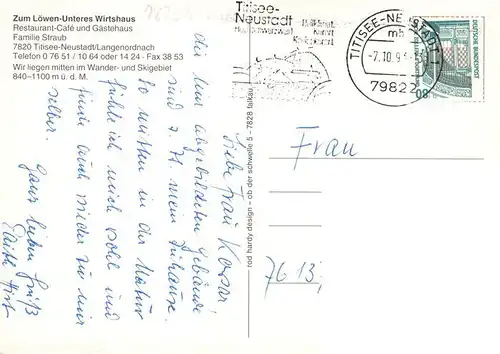 Zum Löwen-Unteres Wirtshaus
Restaurant-Café und Gästehaus
Familie Straub
7820 Titisee-Neustadt/Langenordnach
Telefon 0 76 51 / 10 64 oder 14 24 - Fax 38 53
Wir liegen mitten im Wander- und Skigebiet
840–1100 m ü. d. M.
Titisee-
Neustadt
TITISEE-NEUSTADT
mb
-7.10.9
79822
DEUTSCHE BUNDESPOST
rod hardy design - ob der schwelle 5 - 7828 falkau
Liebe Frau
die hier abgebildeten Gebäude
sind z. Zt. mein Zuhause.
So mitten in der Natur
fühle ich mich wohl und
finde auch wieder zu mir
selber.
Ganz lieben Gruß
Frau
7613